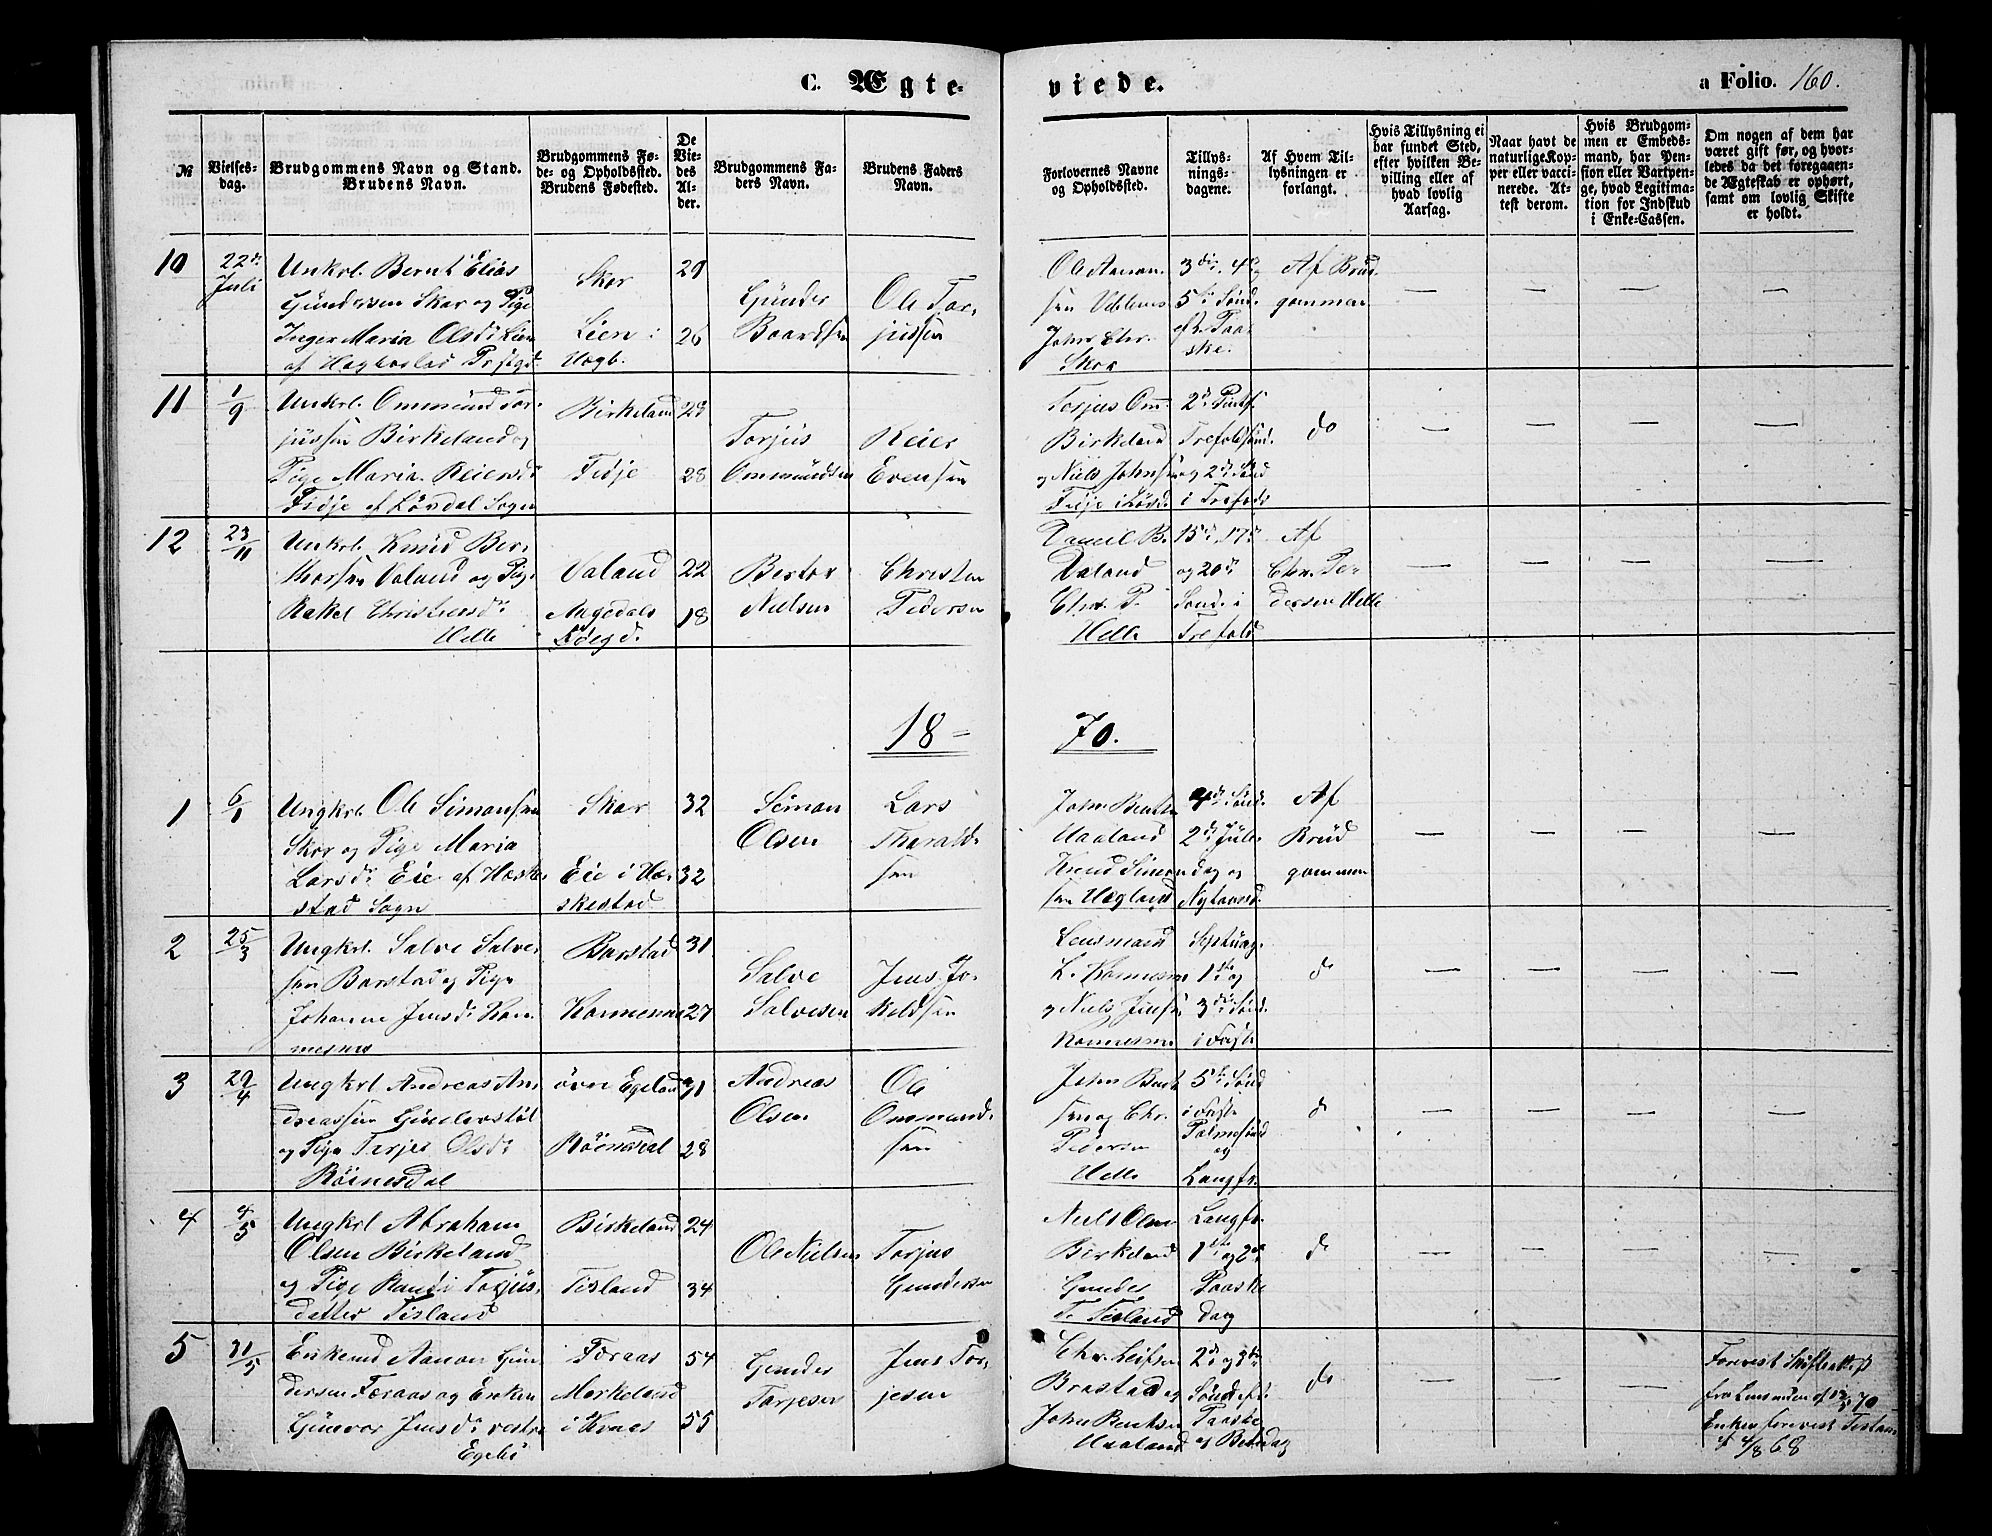 C. Ægte-
viede.
a Folio. 160.
№
Vielses-
dag.
Brudgommens Navn og Stand.
Brudens Navn.
Brudgommens Fø-
de- og Opholdssted.
Brudens Fødested.
De
Vie-
des
Al-
der.
Brudgommens Fa-
ders Navn.
Brudens Faders
Navn.
Forlovernes Navne
og Opholdssted.
Tillys-
nings-
dagene.
Af Hvem Til-
lysningen er
forlangt.
Hvis Tillysning ei
har fundet Sted,
efter hvilken Be-
villing eller af
hvad lovlig
Aarsag.
Naar havt de
naturlige Kop-
per eller vacci-
nerede. At-
test derom.
Hvis Brudgom-
men er Embeds-
mand, har Pen-
sion eller Vartpen-
ge, hvad Legitima-
tion for Indskud
i Enke-Cassen.
Om nogen af dem har
været gift før, og hvor-
ledes da det foregaaen-
de Ægteskab er ophørt,
samt om lovlig Skifte
er holdt.
10
22de
Juli
Unkrl. Bernt Elias
Gundersen Skar og Pige
Inger Maria Olsdr Lien
af Hægbostad Prstgd
Skar
Lien i
Hægb.
29
26
Gunder
Baardsen
Ole Tor-
jussen
Ole Aanon-
sen
John Chr.
Skar
3die, 4de og
5te Sønd.
eft. Paa-
ske.
Af Brud-
gommen
11
1/9
Unkrl. Ommund Tor-
jussen Birkeland og
Pige Maria Reiersdr
Fidje af Løvdal Sogn
Birkeland
Fidje
29
28
Torjus
Ommundsen
Reier
Evensen
Torjus Om.
Birkeland
og Niels Johnsen
Fidje i
2d Pintsd.
Trefoldsønd.
og 2den Sønd
i Trefold.
do
12
23/11
Unkrl. Knud Ber-
thorsen Valand og Pige
Rakel Christensdr
Helle
Valand
Augedals
22
18
Bertor
Nielsen
Christen
Pedersen
Daniel B.
Valand
Chr. P.
Helle
15de, 17de
og 20de
Sønd. i
Trefold
Af
Chr. Pe-
dersen Helle
18-
70.
1
6/1
Ungkrl. Ole Simonsen
Skar og Pige Maria
Larsdr Eie af Hæske-
stad Sogn
Skar
Eie i Hæ-
skestad
32
32
Simon
Olsen
Lars
Tharald-
sen
John Bentsen
Haaland
Knud Simon-
sen Hægland
4de Sønd.
2de Jule-
dag og
Nytaarsd.
Af
Brud
gommen
2
25/3
Ungkrl. Salve Salve-
sen Barstad og Pige
Johanne Jensdr Kor-
nesnes
Barstad
31
27
Salve
Salvesen
Jens Jo-
keldsen
Lensmand
L.
og Niels Jensen
Septuag.
1ste og
3die Sønd.
i Faste
do
3
29/4
Ungkrl Andreas An-
dreassen Gunderstøl
og Pige Torjer Olsdr
Røinesdal
øvre Egeland
Røinesdal
31
28
Andreas
Olsen
Ole
Ommund-
sen
John Bent-
sen og Chr.
Pedersen
Helle
5te Sønd
i Faste
Palmesønd
og
Langfr.
do
4
4/5
Ungkrl Abraham
Olsen Birkeland
og Pige Randi Torjus-
datter Tisland
Birkeland
Tisland
24
34
Ole Nielsen
Torjus
Gundersen
Niels Olsen
Birkeland
Gunder
T. Tisland
Langfr.
1ste og 2den
Paaske
dag
do
5
31/5
Enkemd Aanon Gun-
dersen Foraas og Enken
Gunvor Jensdr vestre
Egebø
Foraas
Mærkeland
i Kvaas
54
55
Gunder
Torjesen
Jens Tor-
jesen
Chr. Leifsen
Brastad og
John Bentsen
Haaland
2den og 3die
Sønd. eft.
Paaske
og Bededag
do
Forevist Skifteatt.
fra Lensmden af 12/5 70
Enken forevist
af 4/8 68